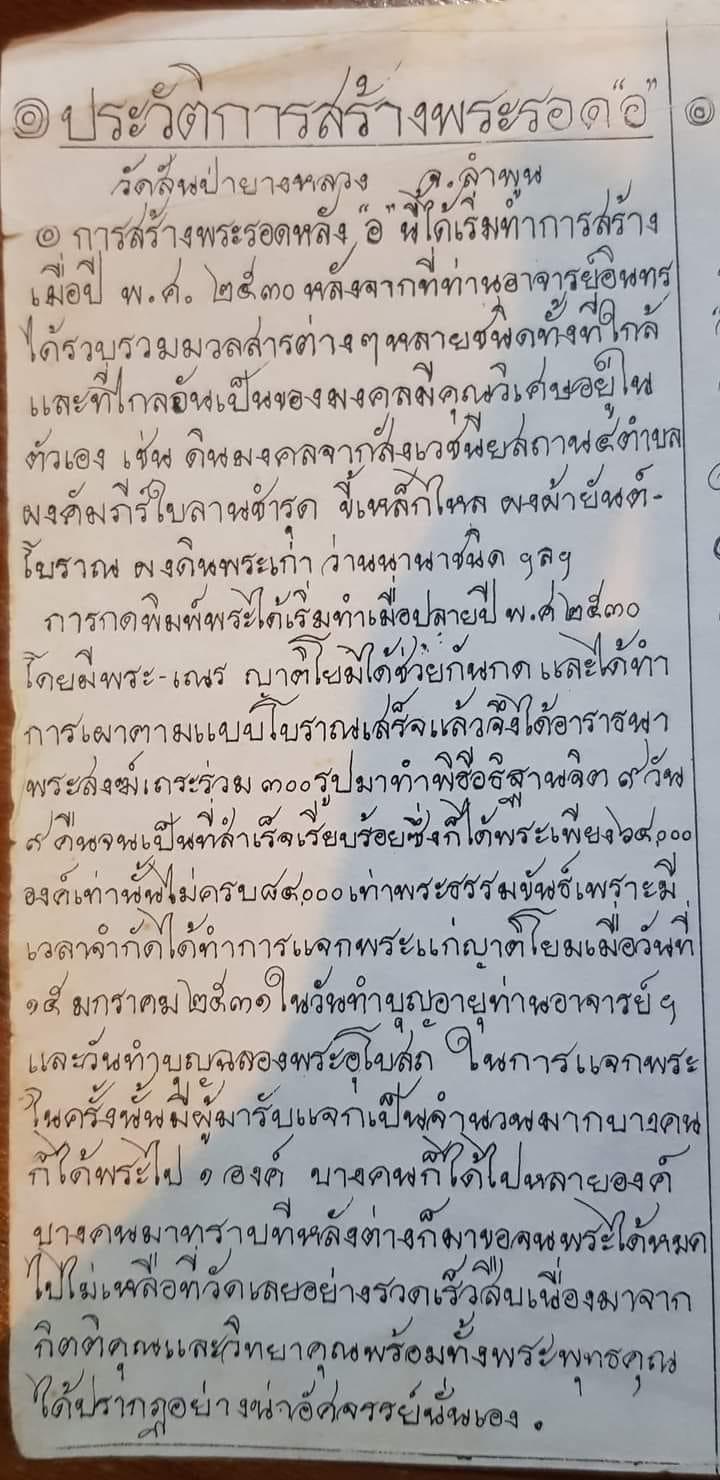 ๏ ประวัติการสร้างพระรอด"อ" ๏
วัดสันป่ายางหลวง จ.ลำพูน
๏ การสร้างพระรอดหลัง "อ" นี้ได้เริ่มทำการสร้าง
เมื่อปี พ.ศ. ๒๕๓๐ หลังจากที่ท่านอาจารย์อินทร
ได้รวบรวมมวลสารต่างๆหลายชนิดทั้งที่ใกล้
และที่ไกลอันเป็นของมงคลมีคุณวิเศษอยู่ใน
ตัวเอง เช่น ดินมงคลจากสังเวชนียสถาน๕ตำบล
ผงคัมภีร์ใบลานชำรุด ขี้เหล็กไหล ผงผ้ายันต์-
โบราณ ผงดินพระเก่า ว่านนานาชนิด ฯลฯ
การกดพิมพ์พระได้เริ่มทำเมื่อปลายปี พ.ศ ๒๕๓๐
โดยมีพระ-เณร ญาติโยมได้ช่วยกันกด และได้ทำ
การเผาตามแบบโบราณเสร็จแล้วจึงได้อาราธนา
พระสงฆ์เถระร่วม ๓๐๐รูปมาทำพิธีอธิฐานจิต ๙ วัน
๙ คืนจนเป็นที่สำเร็จเรียบร้อยซึ่งก็ได้พระเพียง๖๔,๐๐๐
องค์เท่านั้นไม่ครบ๘๔,๐๐๐เท่าพระธรรมขันธ์เพราะมี
เวลาจำกัดได้ทำการแจกพระแก่ญาติโยมเมื่อวันที่
๑๕ มกราคม ๒๕๓๑ ในวันทำบุญอายุท่านอาจารย์ ฯ
และวันทำบุญฉลองพระอุโบสถ ในการแจกพระ
ในครั้งนั้นมีผู้มารับแจกเป็นจำนวนมากบางคน
ก็ได้พระไป ๑ องค์ บางคนก็ได้ไปหลายองค์
บางคนมาทราบทีหลังต่างก็มาขอจนพระได้หมด
ไปไม่เหลือที่วัดเลยอย่างรวดเร็วสืบเนื่องมาจาก
กิตติคุณและวิทยาคุณพร้อมทั้งพระพุทธคุณ
ได้ปรากฏอย่างน่าอัศจรรย์นั่นเอง.